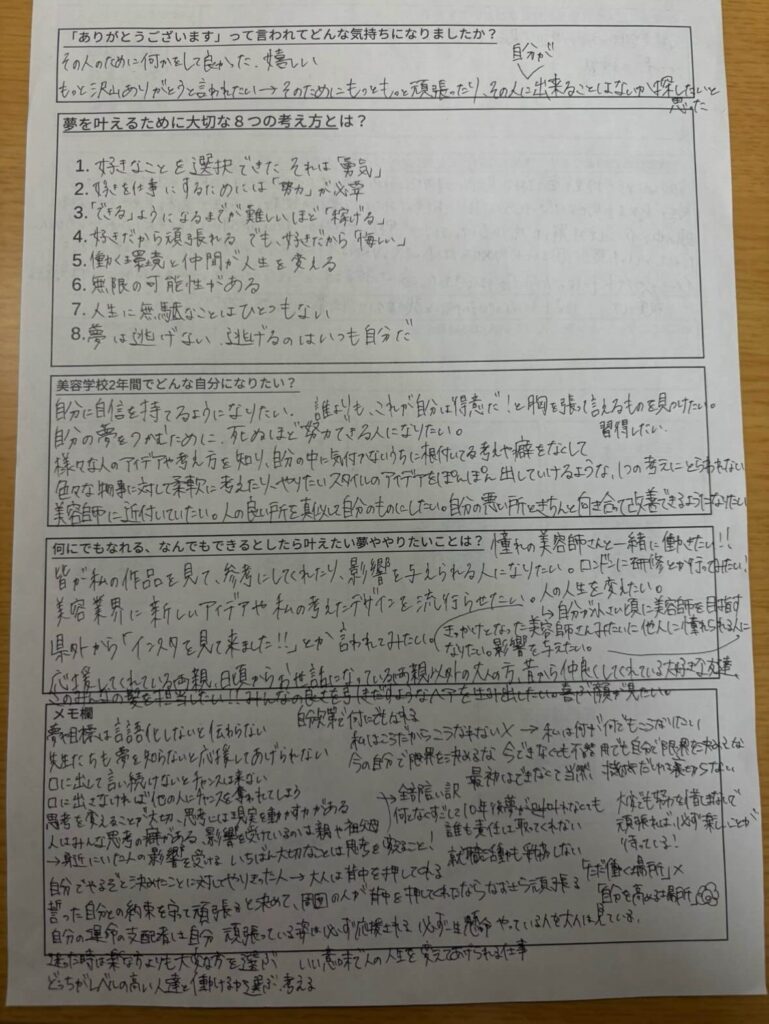 「ありがとうございます」って言われてどんな気持ちになりましたか？
その人のために何かをして良かった、嬉しい
自分が
もっと沢山ありがとうと言われたい→そのためにもっともっと頑張ったり、その人に出来ることはないか探したいと
思った
夢を叶えるために大切な８つの考え方とは？
1. 好きなことを選択できた それは「勇気」
2. 好きを仕事にするためには「努力」が必要
3. 「できる」ようになるまでが難しいほど「稼げる」
4. 好きだから頑張れる でも、好きだから「悔しい」
5. 働く環境と仲間が人生を変える
6. 無限の可能性がある
7. 人生に無駄なことはひとつもない
8. 夢は逃げない 逃げるのはいつも自分だ
美容学校2年間でどんな自分になりたい？
自分に自信を持てるようになりたい、誰よりも、これが自分は得意だ！と胸を張って言えるものを見つけたい。
習得したい
自分の夢をつかむために、死ぬほど努力できる人になりたい。
様々な人のアイデアや考え方を知り、自分の中に気付かないうちに根付いてる考えや癖をなくして
色々な物事に対して柔軟に考えたり、やりたいスタイルのアイデアをぽんぽん出していけるような、1つの考えにとらわれない
美容師に近付いていたい。人の良い所を真似して自分のものにしたい。自分の悪い所ときちんと向き合って改善できるようになりたい
何にでもなれる、なんでもできるとしたら叶えたい夢ややりたいことは？
憧れの美容師さんと一緒に働きたい！！
皆が私の作品を見て、参考にしてくれたり、影響を与えられる人になりたい。ロンドンに研修とか行ってみたい！
美容業界に新しいアイデアや私の考えたデザインを流行らせたい。人の人生を変えたい。
↳自分が小さい頃に美容師を目指す
県外から「インスタを見て来ました！！」とか言われてみたい。
きっかけとなった美容師さんみたいに他人に憧れられる人に
なりたい。影響を与えたい。
応援してくれている両親、日頃からお世話になっている両親以外の大人の方、昔から仲良くしてくれている大好きな友達、
このみんなの髪を担当したい！！みんなの良さを引きだすようなヘアを生み出したい。喜ぶ顔が見たい。
メモ欄
夢や目標は言語化しないと伝わらない
先生たちも夢を知らないと応援してあげられない
口に出して言い続けないとチャンスは来ない
口に出さなければ他の人にチャンスを奪われてしまう
思考を変えることが大切、思考には現実を動かす力がある
人はみんな思考の癖がある、影響を受けているのは親や祖父母
→身近にいた人の影響を受ける いちばん大切なことは思考を変えること！
自分次第で何にでもなれる
私はこうだからこうなれない×→私は何が何でもこうなりたい
今の自分で限界を決めるな 今できなくても不器用でも自分で限界を決めるな
最初はできなくて当然
→全部言い訳
何もなくすごして10年後夢が叶わないも
誰も責任は取ってくれない
就職活動も
大変でも努力を惜しまないで
頑張れば、必ず楽しいことが
待っている！
「ただ働く場所」×
「自分を高める場所」
自分でやるぞと決めたことに対してやりきった人→大人は背中を押してくれる
誓った自分との約束を守って頑張ると決めて、周囲の人が背中を押してくれたならなおさら頑張る
自分の運命の支配者は自分 頑張っている姿は必ず応援される 必ず一生懸命やっている人を大人は見ている。
迷った時は楽な方よりも大変な方を選ぶ いい意味で人の人生を変えてあげられる仕事
どっちがレベルの高い人達と働けるかを選ぶ、考える